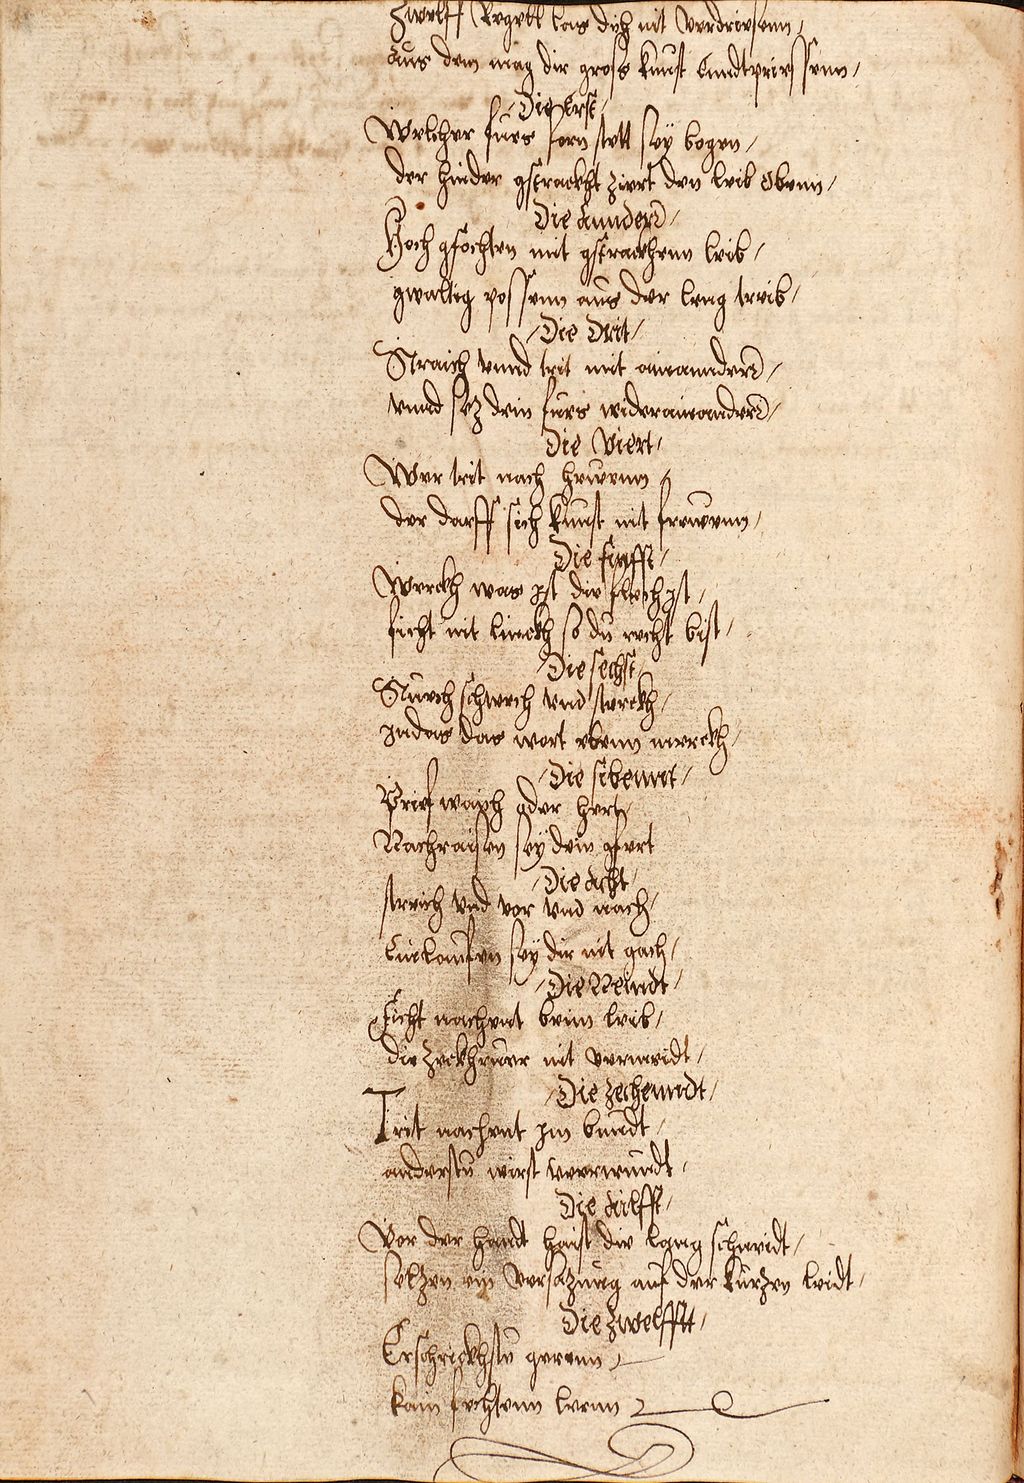 Zwelff Regell las dich nit verdriesenn /
aus dem mag dir gross kunst Enndtpriessenn /
/ Die Erst /
Welcher fues forn stett sey bogen /
der hinder gstrackht ziert den leib Obenn /
Die annder /
Hoch gfochten mit gstrackhenn leib /
gwaltig possenn aus der leng treib /
/ Die Drit /
Straich vnnd trit mit ainannder /
vnnd sez dein fues widerainander /
Die Viert /
Wer trit nach hewenn /
der darff sich kunst nit frewenn /
Die finfft /
Merckh was ist die flech ist /
ficht nit linckh so du recht bist /
Die sechst /
Suech schwech vnd sterckh /
Indas das wort ebenn merckh /
/ Die sibennt /
Brief waich oder hert /
Nachraisen sey dein gfert
/ Die Acht /
streich vnd vor vnd nach /
Einlauffen sey dir nit gach /
/ Die Neindt /
Ficht nachent beim leib /
die zeckhruer nit vermeidt /
/ Die zechenndt /
Trit nachent Im bundt /
anderstu wirst verwundt /
Die Ailfft /
Vor der handt haist die lang schneidt /
selzen ein versazung auf der kurzen leidt /
Die zwelfft /
Erschrickhstu gerenn /
kain fechtenn lernn